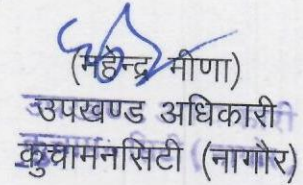 (महेन्द्र मीणा)
उपखण्ड अधिकारी
कुचामनसिटी (नागौर)